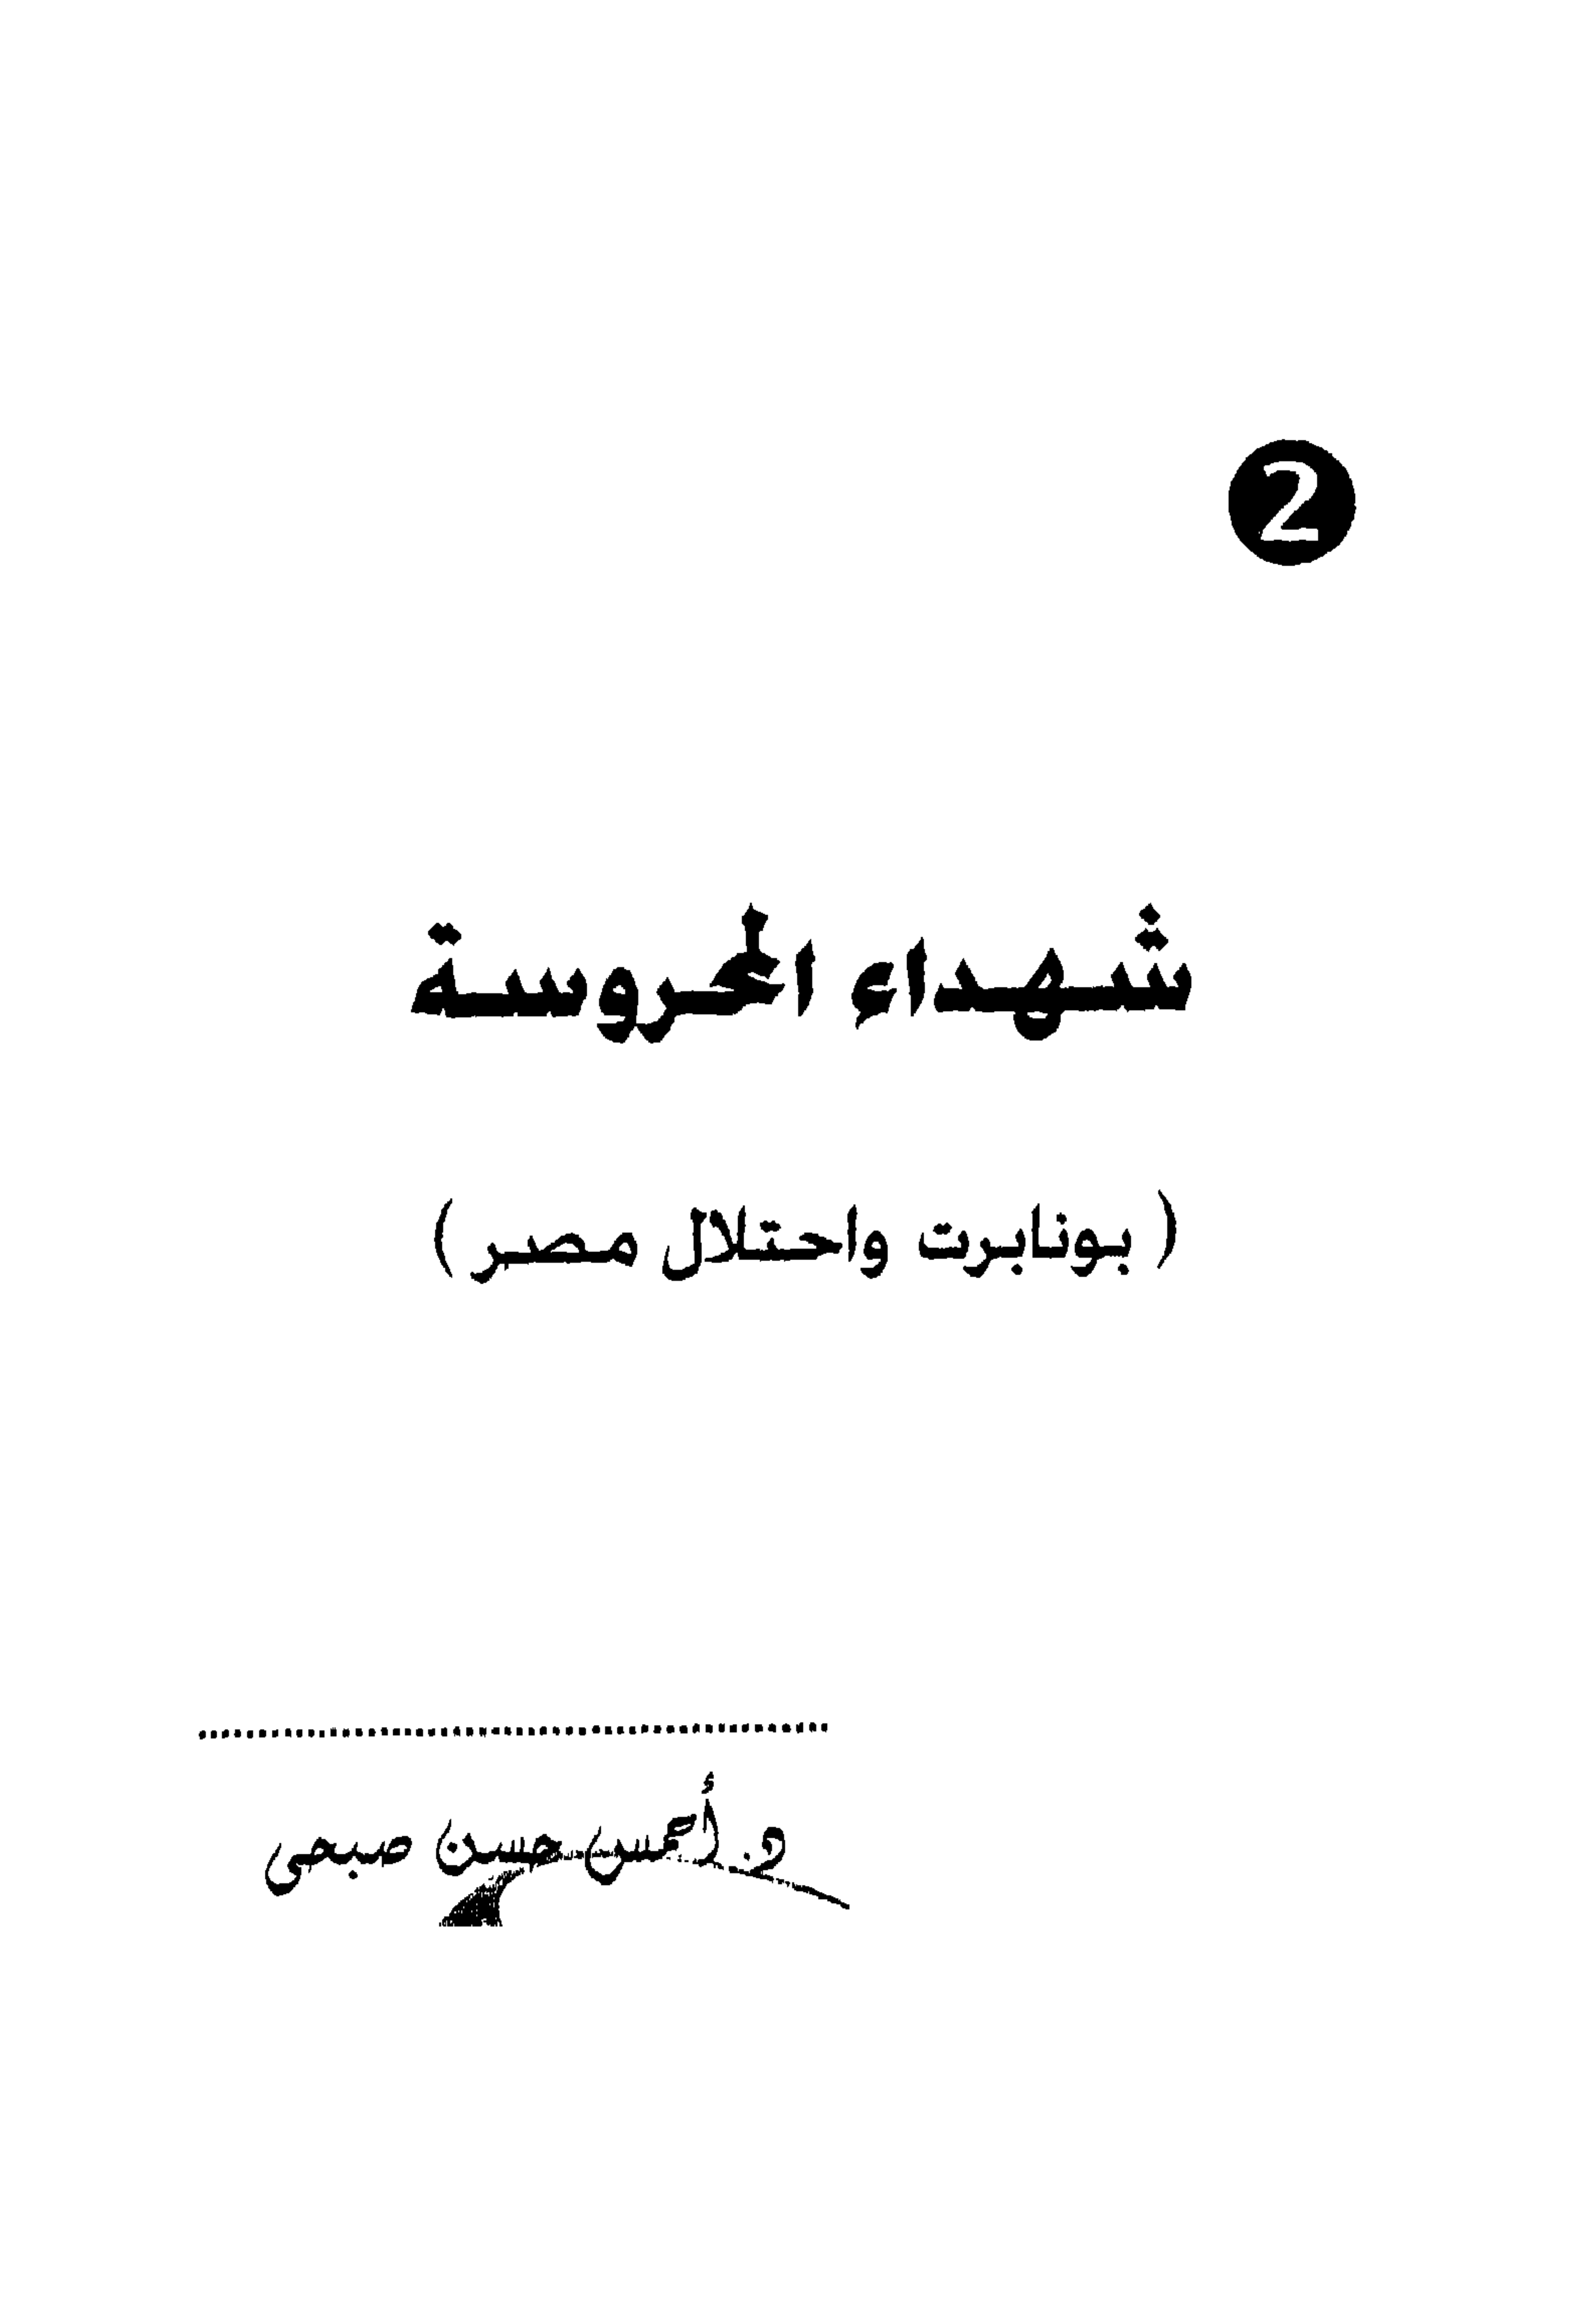 2
شهداء المحروسة
( بونابرت واحتلال مصر )
د. أحمس حسن صبحى